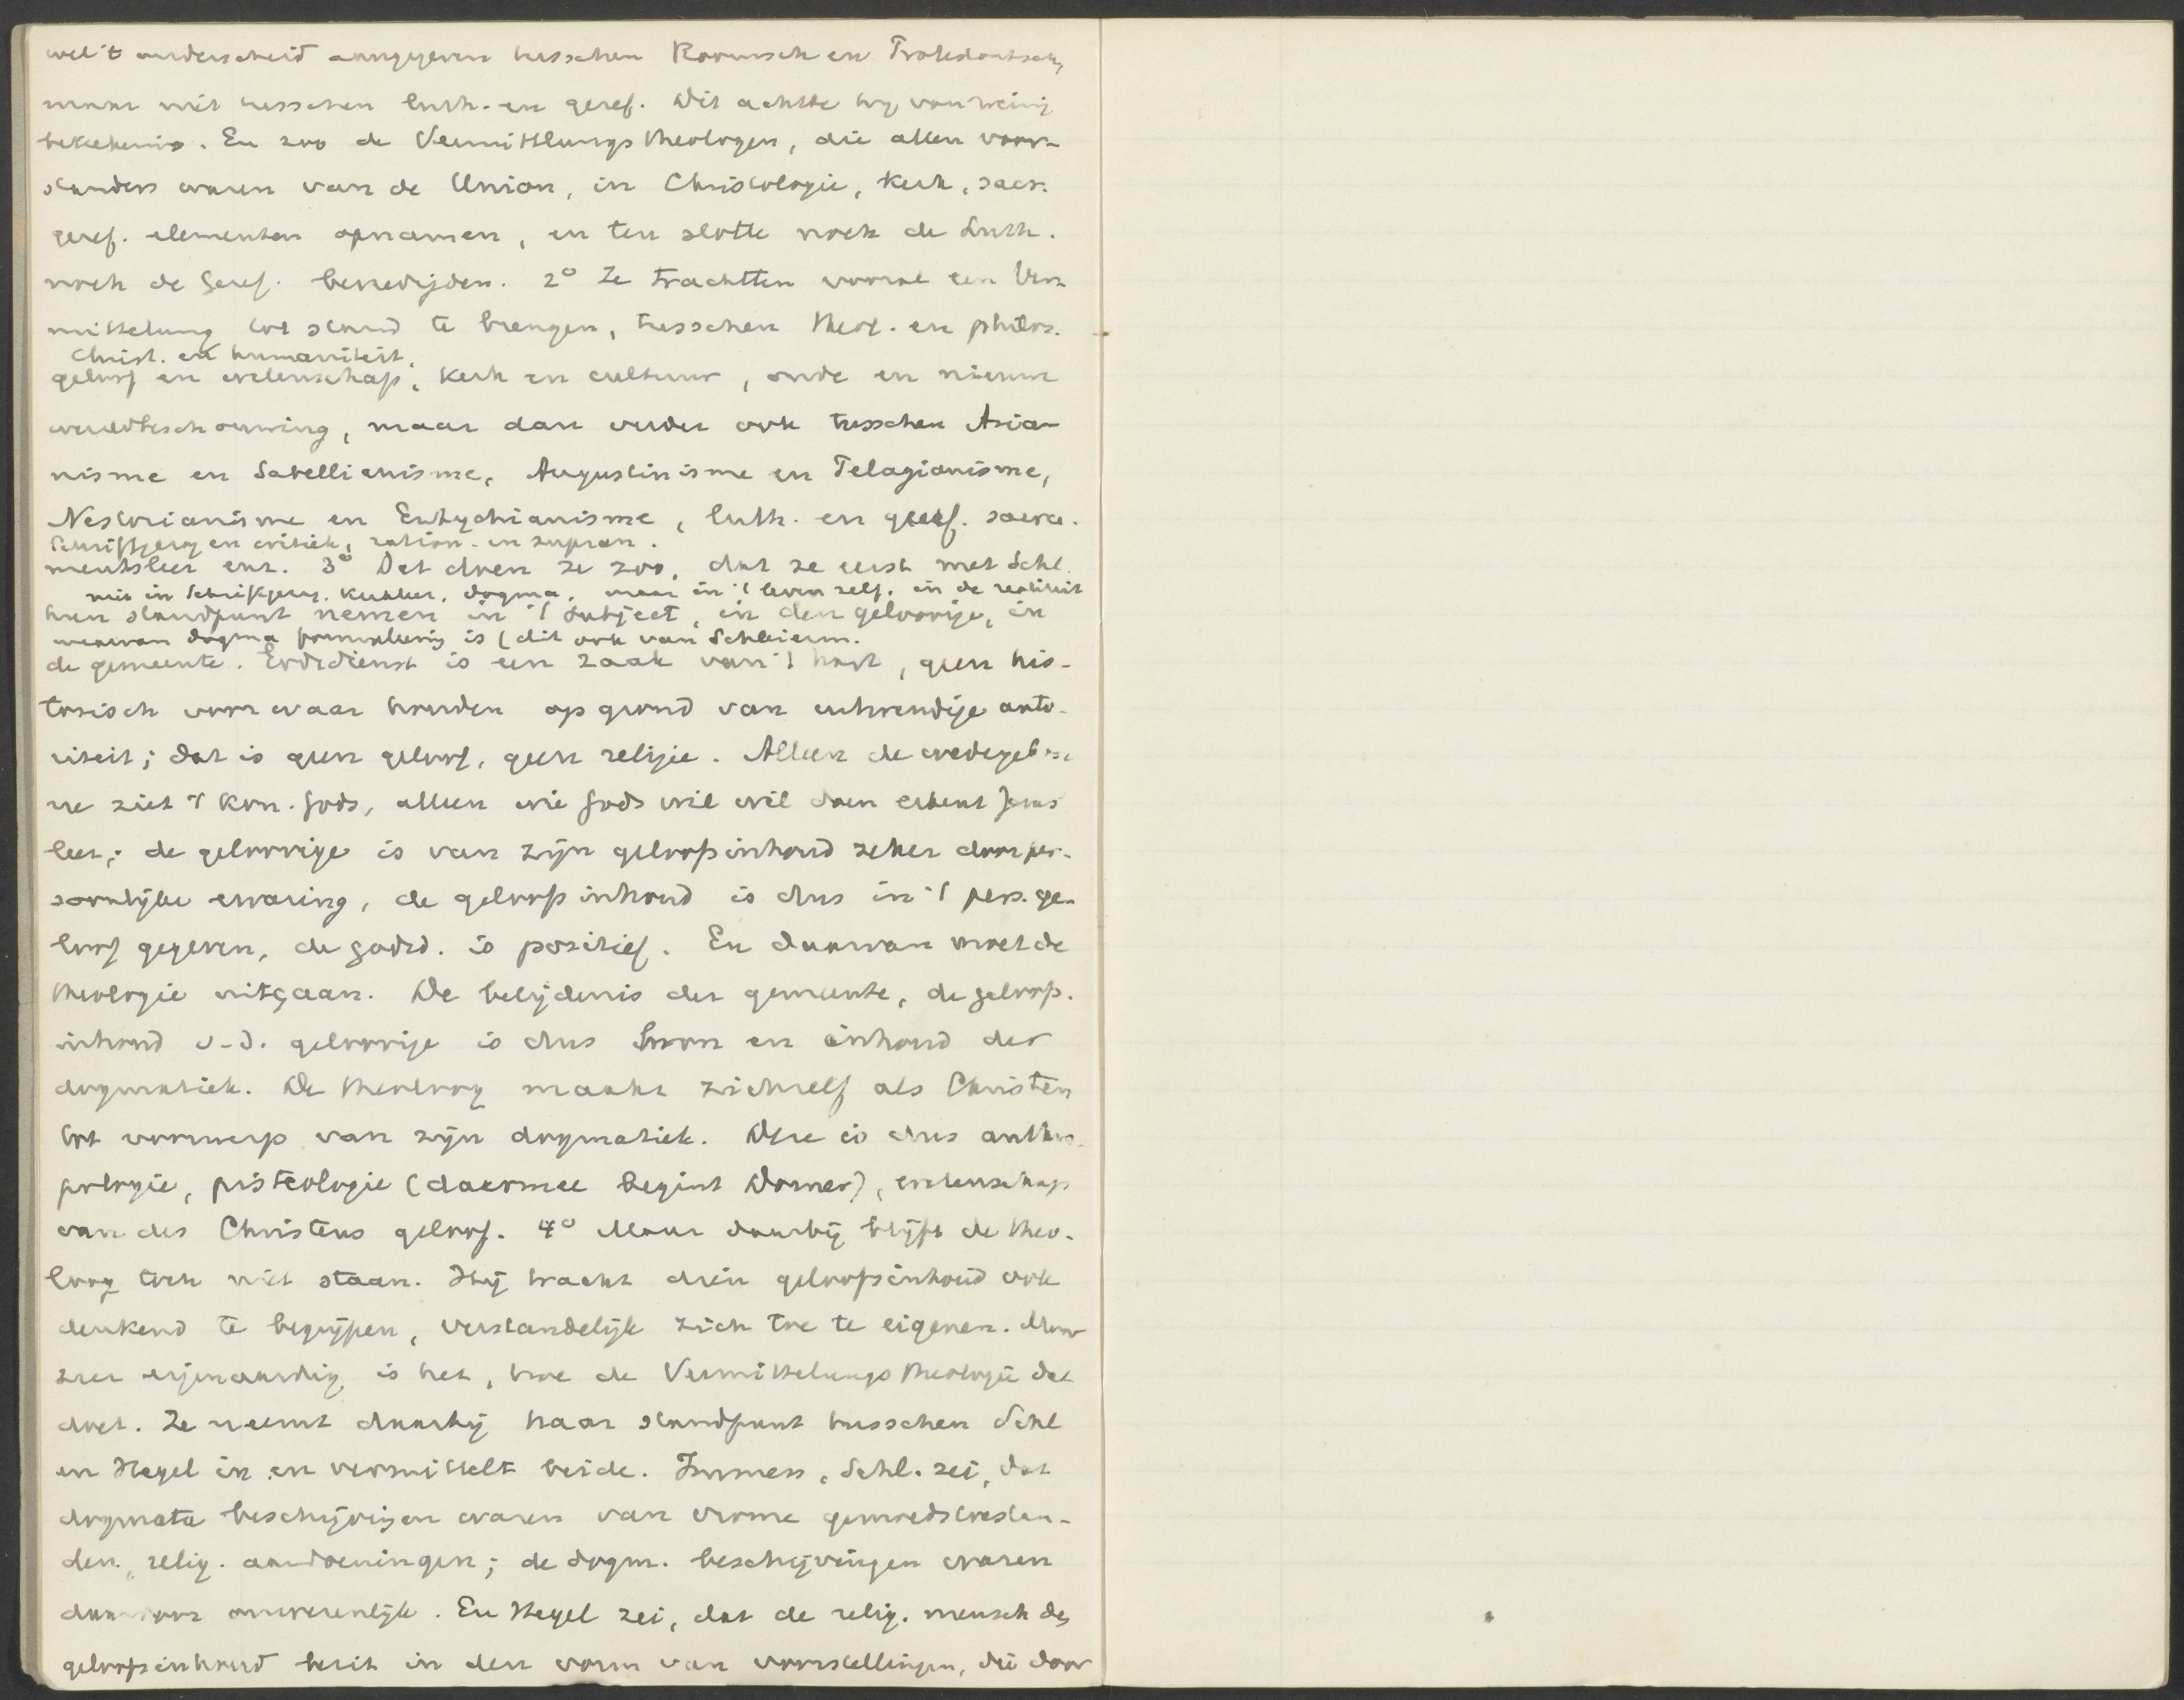 wel 't onderscheid aangegeven tusschen Roomsch en Protestantsch,
maar niet tusschen luth. en geref. Dit achtte hij van weinig
beteekenis. En zoo de Vermittlungstheologen, die allen voor-
standers waren van de Union, in Christologie, Kerk, sacr.
geref. elementen opnamen, en ten slotte noch de Luth.
noch de Geref. bevredigden. 2° Ze trachtten vooral een Ver-
mittelung tot stand te brengen, tusschen theol. en philos.
Christ. en humaniteit,
geloof en wetenschap, kerk en cultuur, oude en nieuwe
wereldbeschouwing, maar dan verder ook tusschen Aria-
nisme en Sabellianisme, Augustinisme en Pelagianisme,
Nestorianisme en Eutychianisme, luth. en geref. sacra-
Schriftgezag en critiek, ration. en supran.
mentsleer enz. 3° Dat doen ze zoo, dat ze eerst met Schl.
niet in Schriftgezag, Kerkleer, dogma, maar in 't leven zelf, in de realiteit
hun standpunt nemen in 't subject, in den geloovige, in
waarvan dogma formuleering is (dit ook van Schleierm.
de gemeente. Godsdienst is een zaak van 't hart, geen his-
torisch voor waar houden op grond van uitwendige auto-
riteit; dat is geen geloof, geen religie. Alleen de wedergebore-
ne ziet 't Kon. Gods, alleen wie Gods wil wil doen erkent Jezus'
leer; de geloovige is van zijn geloofsinhoud zeker door per-
soonlijke ervaring, de geloofsinhoud is dus in 't pers. ge-
loof gegeven, de godsd. is positief. En daarvan moet de
theologie uitgaan. De belijdenis der gemeente, de geloofs-
inhoud v.d. geloovige is dus bron en inhoud der
dogmatiek. De theoloog maakt zichzelf als Christen
tot voorwerp van zijn dogmatiek. Deze is dus anthro-
pologie, pisteologie (daarmee begint Dorner), wetenschap
van des Christens geloof. 4° Maar daarbij blijft de theo-
loog toch niet staan. Hij tracht dien geloofsinhoud ook
denkend te begrijpen, verstandelijk zich toe te eigenen. Maar
zeer eigenaardig is het, hoe de Vermittelungstheologie dat
doet. Ze neemt daarbij haar standpunt tusschen Schl
en Hegel in en vermittelt beide. Immers, Schl. zei, dat
dogmata beschrijvingen waren van vrome gemoedstoestan-
den, relig. aandoeningen; de dogm. beschrijvingen waren
daarvoor onwezenlijk. En Hegel zei, dat de relig. mensch den
geloofsinhoud bezit in den vorm van voorstellingen, die door